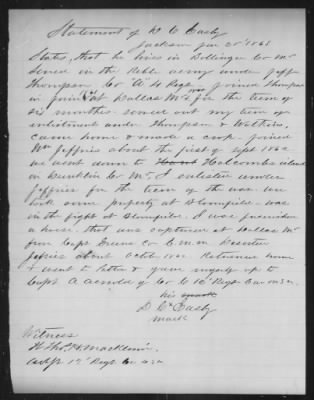 Statement of D C Casty
Jackson Jan 20th 1863
States, that he lives in Bollinger Co Mo
served in the Rebble army under Jeff
Thompson Co "A" 4 Regt joined Thompson
in at Dallas Mo for the term of
six months served out my term of
enlistment under Thompson & Walters,
came home & made a crop joined
Wm Jeffries about the first of Sept 1862
we went down to Holcombs island
in Dunklin Co Mo. I enlisted under
Jeffries for the term of the war. we
took some property at Bloomfield was
in the fight at Bloomfield. I was furnished
a horse that was captured at Dallas Mo
from Capt Co E M M Deserted
Jefries about Octb. 1862 Returned home
& went to & gave myself up to
Capt A of Co C 12" Regt Cav M S M
his
D C x Casty
mark
Witness
H Thos. H. Macklind
1" Regt Cav M S M